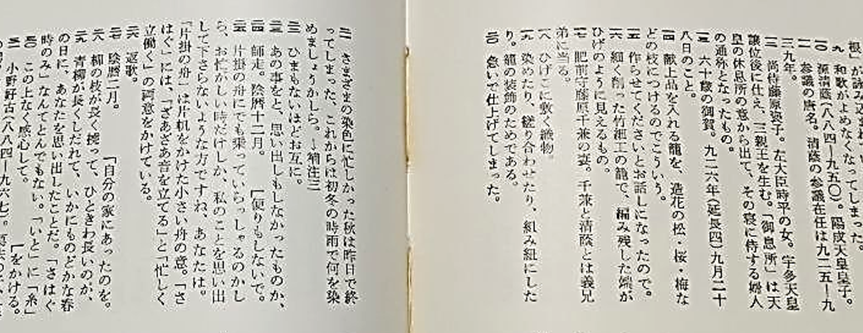 九 和歌がよめなくなってしまった。
一〇 源清蔭(八八四―九五〇)。陽成天皇皇子。
一一 参議の唐名。清蔭の参議在任は九二五―九
三九年。
一二 尚侍藤原褒子。左大臣時平の女。宇多天皇
譲位後に仕え、三親王を生む。「御息所」は天
皇の休息所の意から出て、その寝に侍する婦人
の通称となったもの。
一三 六十歳の御賀。九二六年(延長四)九月二十
八日のこと。
一四 献上品を入れる籠を、造花の松・桜・梅な
どの枝につけるのでこういう。
一五 作らせてくださいとお話しになったので。
一六 細く削った竹細工の籠で、編み残した端が
ひげのように見えるもの。
一七 肥前守藤原千兼の妻。千兼と清蔭とは義兄
弟に当る。
一八 ひげこに敷く織物。
一九 染めたり、縒り合わせたり、組み組にした
り。籠の装飾のためである。
二〇 急いで仕上げてしまった。
二一 さまざまの染色に忙しかった秋は昨日で終
ってしまった、これからは初冬の時雨で何を染
めましょうかしら。→補注三
二二 ひまもないほどお互に。
二三 あの事をと、思い出しもしなかったものか、
二四 師走。陰暦十二月。 [便りもしないで。
二五 片掛の舟にでも乗っていらっしゃるのかし
ら、お忙しい時だけしか、私のことを思い出
して下さらないような方ですね、あなたは。
「片掛の舟」は片帆をかけた小さい舟の意。「さ
はぐ」には、「さあざあ音を立てる」と「忙しく
立働く」の両意をかけている。
二六 返歌。
二七 陰暦二月。
二八 柳の枝が長く撓って、ひときわ長いのが、
二九 青柳が長くしだれて、いかにものどかな春
の日に、あなたを思い出したことだ。「さはぐ
時のみ」なんてとんでもない。「いと」に「糸」
三〇 この上なく感心して。 [をかける。
三一 小野好古(八八四―九六七)。